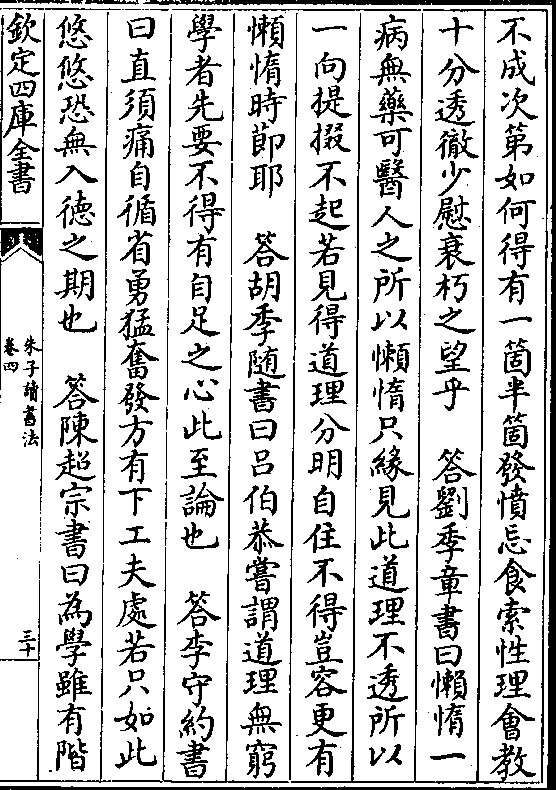 不成次第如何得有一箇半箇發憤忘食索性理會教
十分透徹少慰衰朽之望乎　答劉季章書曰懶惰一
病無藥可醫人之所以懶惰只縁見此道理不透所以
一向提掇不起若見得道理分明自住不得豈容更有
懶惰時節耶　答胡季随書曰吕伯恭嘗謂道理無窮
學者先要不得有自足之心此至論也　答李守約書
曰直須痛自循省勇猛奮發方有下工夫處若只如此
悠悠恐無入徳之期也　答陳超宗書曰為學雖有階
欽定四庫全書
朱子讀書法
卷四
三十